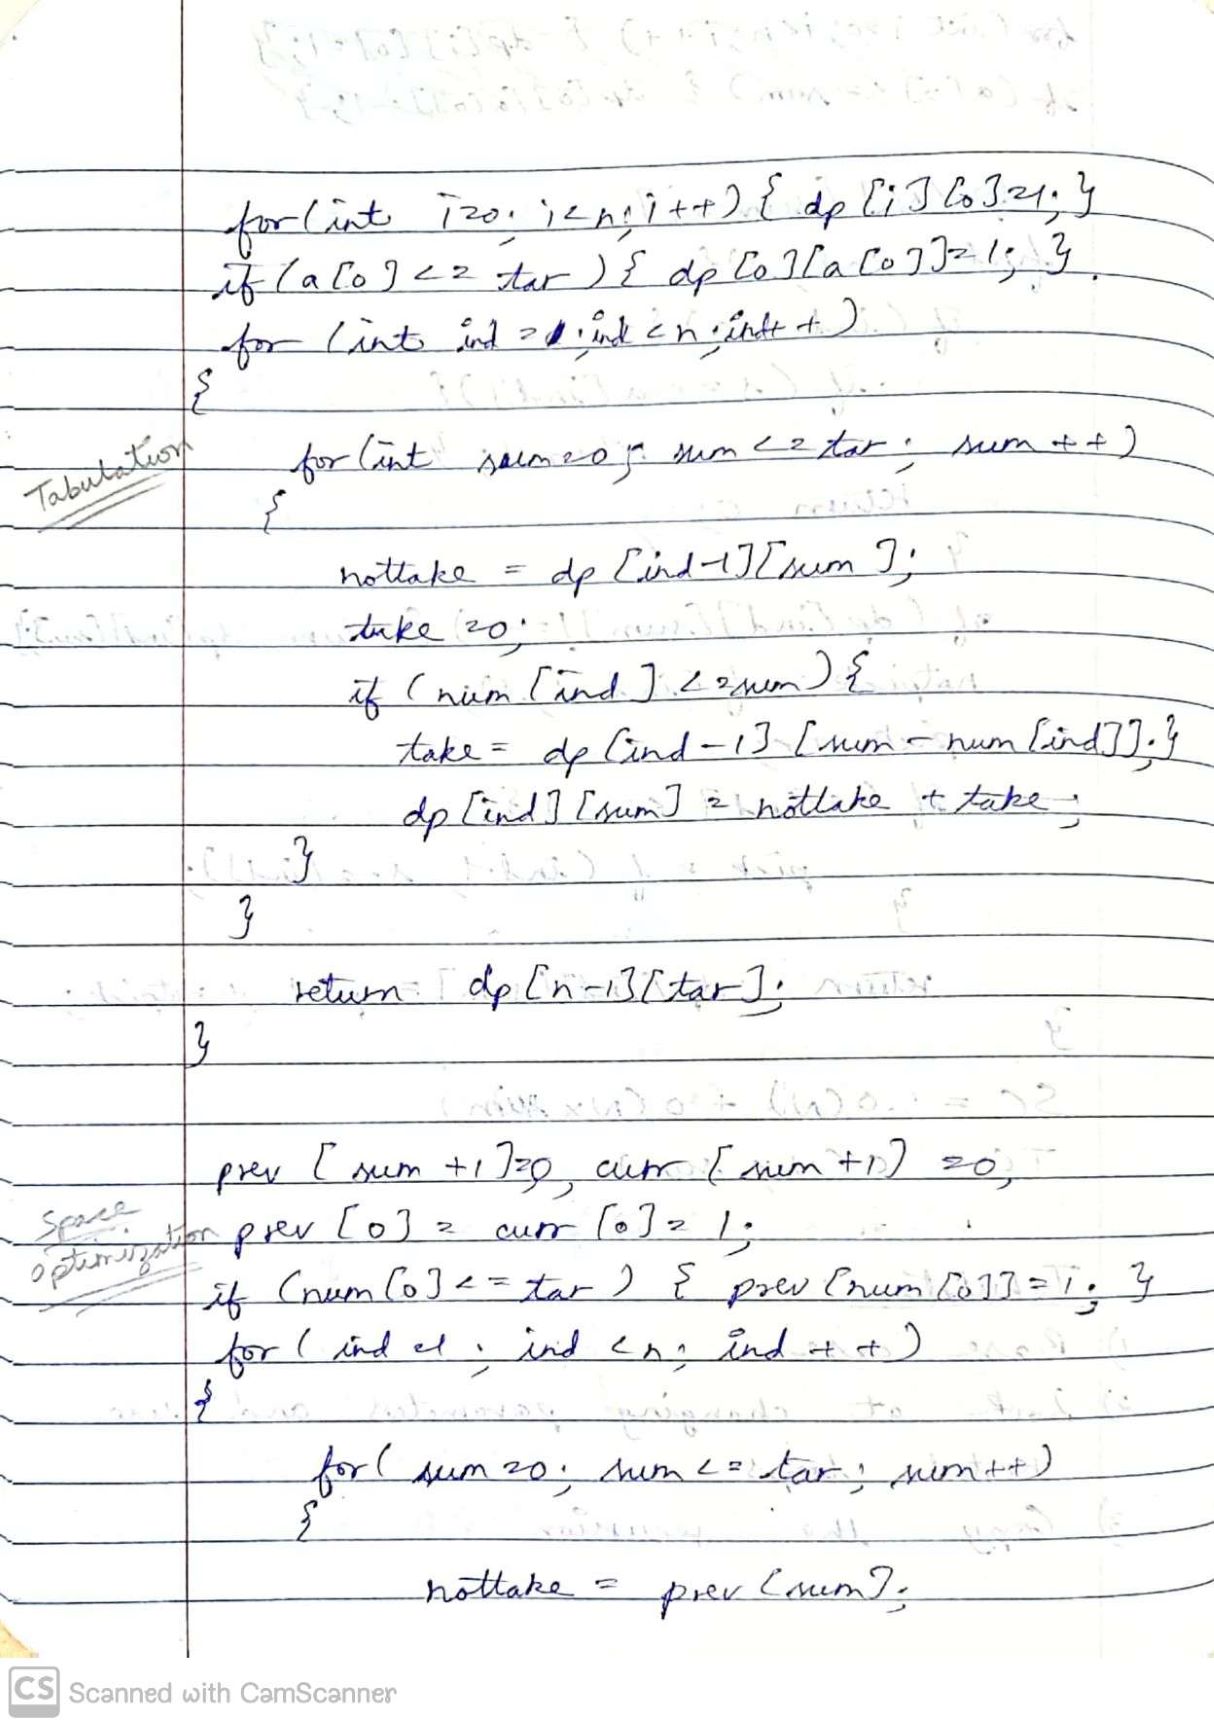 for(int i=0; i<n; i++) { dp[i][0]=1; }
if(a[0] <= tar) { dp[0][a[0]]=1; }
for (int ind = 1; ind < n; ind++)
{
Tabulation
for(int sum=0; sum <= tar; sum ++)
{
nottake = dp [ind-1][sum];
take =0;
if (num [ind] <= sum) {
take = dp [ind-1] [sum - num[ind]]; }
dp [ind] [sum] = nottake + take;
}
}
return dp [n-1][tar];
}
prev [sum +1]=0, curr [sum +1] =0,
Space optimization
prev [0] = curr [0] = 1;
if (num[0] <= tar) { prev [num [0]] = 1; }
for ( ind =1; ind <n; ind ++)
{
for( sum =0; sum <= tar; sum++)
{
nottake = prev [sum];
CS Scanned with CamScanner